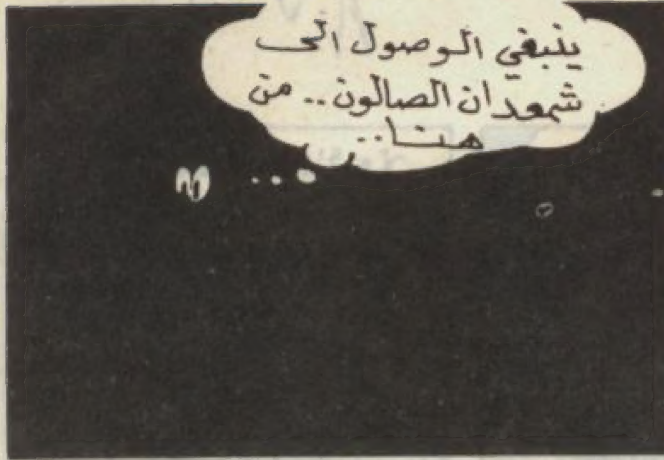 ينبغي الوصول الى
شمعدان الصالون.. من
هنا..